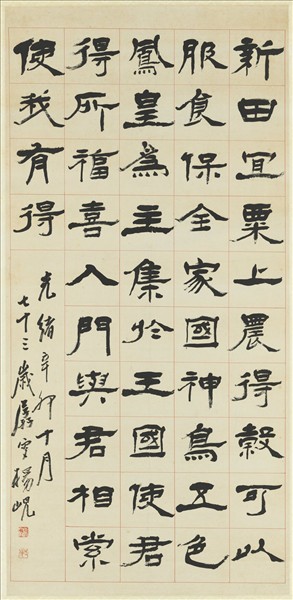 新田宜粟上農得穀可以
服食保全家國神鳥五色
鳳皇爲主集於王國使君
得所福喜入門與君相索
使我有得
光緒辛卯十月
七十三歲楊峴